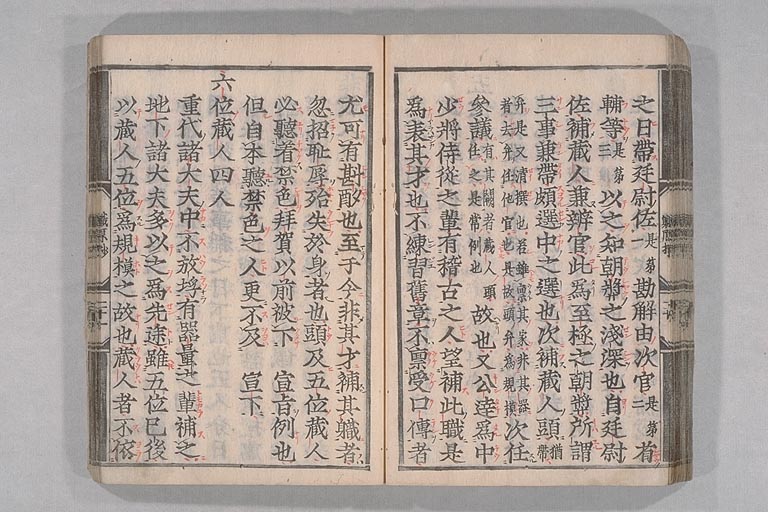 之日帶廷尉佐一是第勘解由次官二是第有
輔等三是第以之知朝弊之淺深也自廷尉
佐補藏人兼辨官此爲至極之朝弊所謂
三事兼帶頗選中之選也次補藏人頭猶帶
弁是又清撰也若雖禀其家非其器
者去弁任他官也是故頭弁爲規摸次任
參議有其闕者藏人頭任之是常例也故也又公達爲中
少將侍從之輩有稽古之人望補此職是
爲表其才也不練習舊章不禀受口傳者
尤可有斟酌也至于今非其才補其軄者
忽招耻辱殆失於身者也頭及五位藏人
必聽着禁色拜賀以前被下宣旨例也
但自本聽禁色之人更不及宣下
六位藏人四人
重代諸大夫中不放埒有器量之輩補之
地下諸大夫多以之爲先途雖五位已後
以藏人五位爲規模之故也藏人者不依